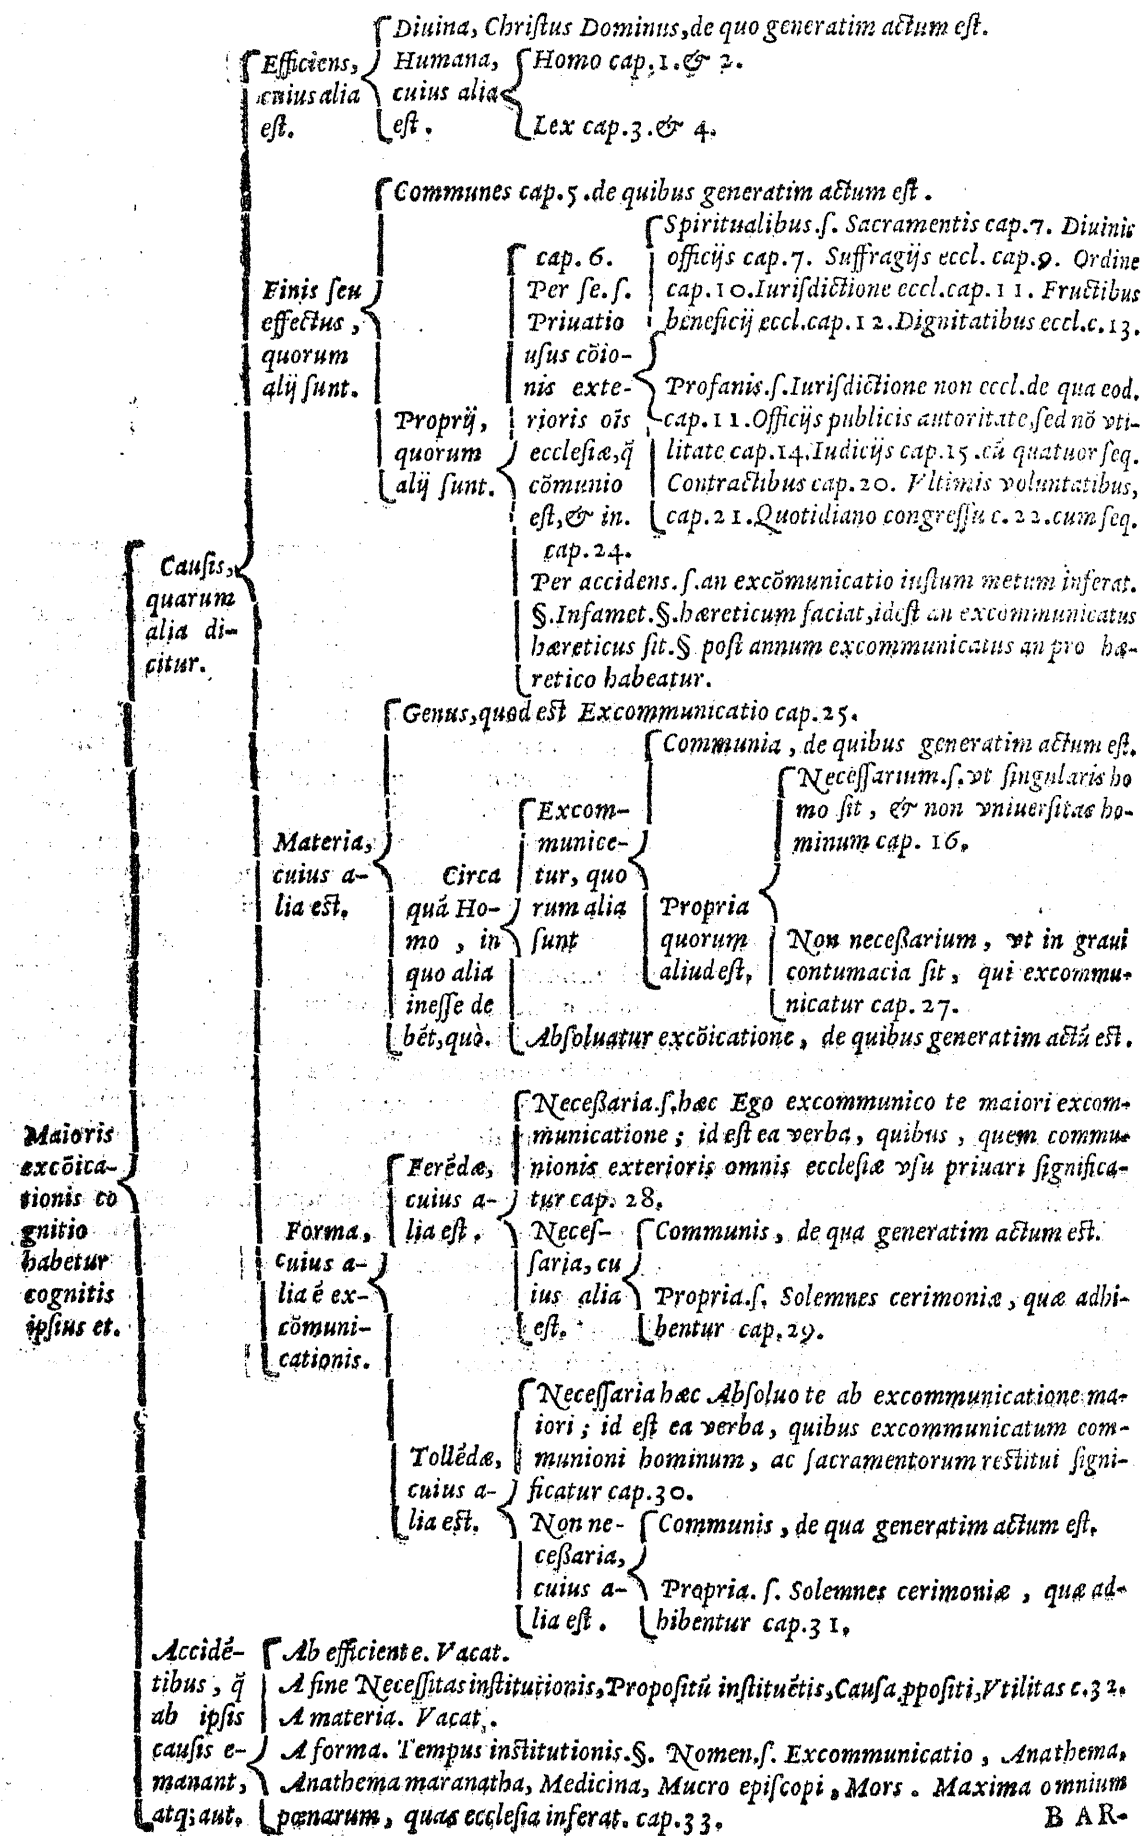 Diuina, Chriſtus Dominus, de quo generatim actum eſt.
Efficiens, cuius alia eſt.
Humana, cuius alia eſt.
Homo cap. 1. & 2.
Lex cap. 3. & 4.
Communes cap. 5. de quibus generatim actum eſt.
Finis ſeu
effectus,
quorum
alij ſunt.
Proprij,
quorum
alij ſunt.
cap. 6.
Per ſe. ſ.
Priuatio
uſus cōio-
nis exte-
rioris oīs
eccleſiæ, q̄
cōmunio
eſt, & in.
Spiritualibus. ſ. Sacramentis cap. 7. Diuinis
officijs cap. 7. Suffragijs eccl. cap. 9. Ordine
cap. 10. Iuriſdictione eccl. cap. 11. Fructibus
beneficij eccl. cap. 12. Dignitatibus eccl. c. 13.
Profanis. ſ. Iuriſdictione non eccl. de qua eod.
cap. 11. Officijs publicis autoritate, ſed nō vti-
litate cap. 14. Iudicijs cap. 15. cū quatuor ſeq.
Contractibus cap. 20. Vltimis voluntatibus,
cap. 21. Quotidiano congreſſu c. 22. cum ſeq.
cap. 24.
Per accidens. ſ. an excōmunicatio iuſtum metum inferat.
§. Infamet. §. hæreticum faciat, ideſt an excommunicatus
hæreticus ſit. § poſt annum excommunicatus an pro hæ-
retico habeatur.
Cauſis,
quarum
alia di-
citur.
Genus, quod est Excommunicatio cap. 25.
Materia,
cuius a-
lia eſt.
Circa
quā Ho-
mo, in
quo alia
ineſſe de
bēt, quò.
Excom-
munice-
tur, quo
rum alia
ſunt
Communia, de quibus generatim actum eſt.
Propria
quorum
aliud eſt.
Neceſſarium. ſ. vt ſingularis ho
mo ſit, & non vniuerſitas ho-
minum cap. 16.
Non neceßarium, vt in graui
contumacia ſit, qui excommu-
nicatur cap. 27.
Abſoluatur excōicatione, de quibus generatim actū eſt.
Maioris
excōica-
tionis co
gnitio
habetur
cognitis
ipſius et.
Forma,
cuius a-
lia ē ex-
cōmuni-
cationis.
Ferēdæ,
cuius a-
lia eſt.
Neceßaria. ſ. hæc Ego excommunico te maiori excom-
municatione; id eſt ea verba, quibus, quem commu-
nionis exterioris omnis eccleſiæ vſu priuari ſignifica-
tur cap. 28.
Neceſ-
ſaria, cu
ius alia
eſt.
Communis, de qua generatim actum eſt.
Propria. ſ. Solemnes cerimoniæ, quæ adhi-
bentur cap. 29.
Tollēdæ,
cuius a-
lia eſt.
Neceſſaria hæc Abſoluo te ab excommunicatione ma-
iori; id eſt ea verba, quibus excommunicatum com-
munioni hominum, ac ſacramentorum reſtitui ſigni-
ficatur cap. 30.
Non ne-
ceßaria,
cuius a-
lia eſt.
Communis, de qua generatim actum eſt.
Propria. ſ. Solemnes cerimoniæ, quæ ad-
hibentur cap. 31.
Accidē-
tibus, q̄
ab ipſis
cauſis e-
manant,
atq; aut.
Ab efficiente. Vacat.
A fine Neceſſitas inſtitutionis, Propoſitū inſtituētis, Cauſa ꝓpoſiti, Vtilitas c. 32.
A materia. Vacat.
A forma. Tempus inſtitutionis. §. Nomen. ſ. Excommunicatio, Anathema,
Anathema maranatha, Medicina, Mucro epiſcopi, Mors. Maxima omnium
pœnarum, quas eccleſia inferat. cap. 33.
BAR-